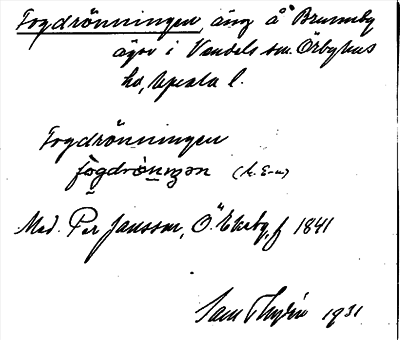 Fogdrönningen, äng å Brunnby
ägor i Vendels sn. Örbyhus
hd, Upsala l.
Fogdrönningen
fògdrò̀nıŋən (A. E-n)
Med. Per Jansson, Ö. Ekeby, f 1841
1931